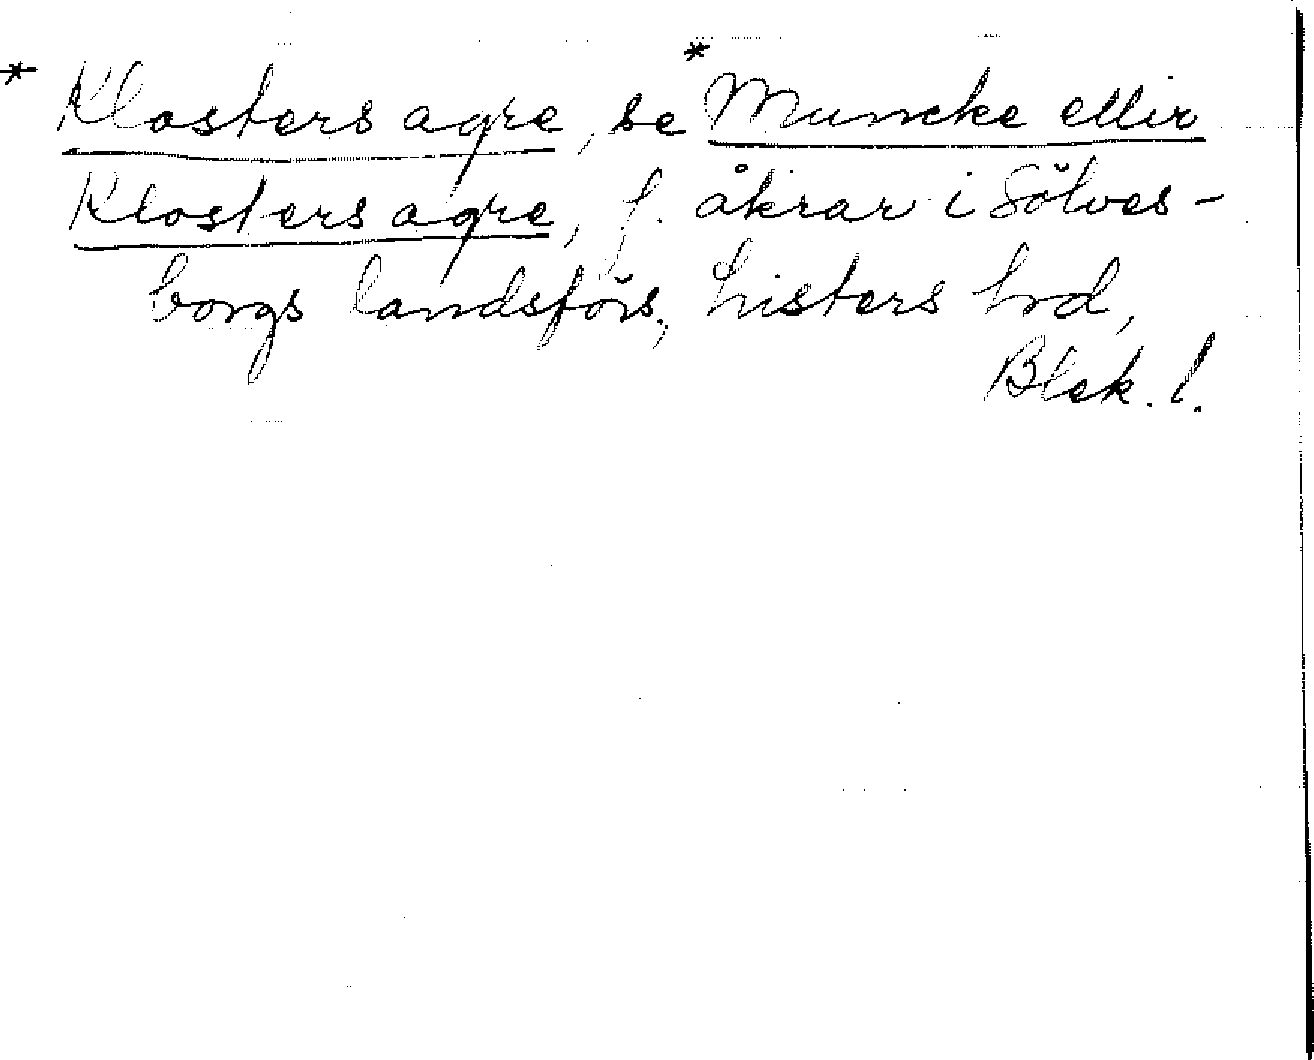 * Klosters agre, se *Muncke ellir
Klosters agre, f. åkrar i Sölves-
borgs landsförs., Listers hd,
Blek. l.